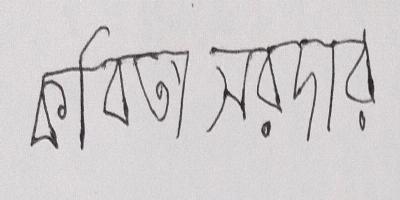 কবিতা সরদার